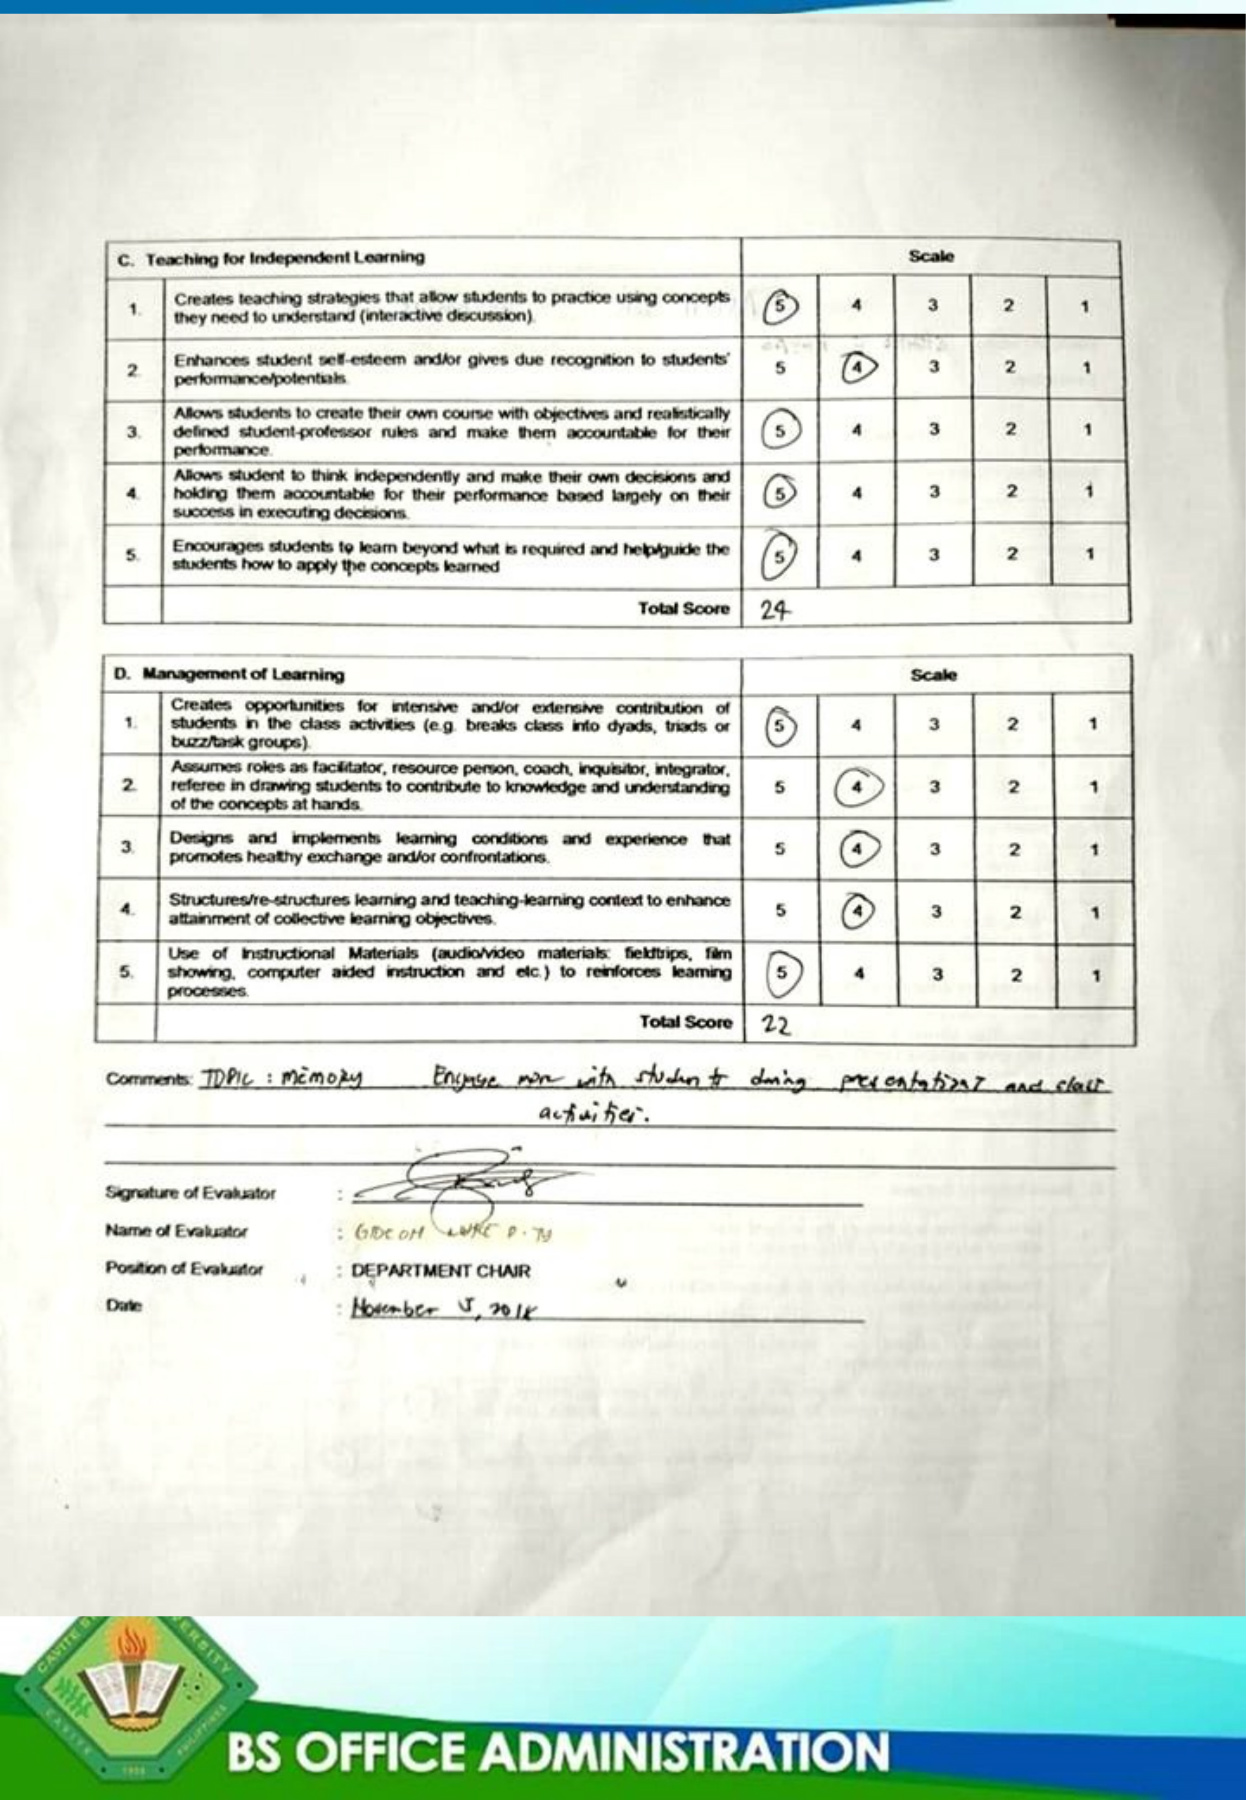 C. Teaching for Independent Learning Scale
1. Creates teaching strategies that allow students to practice using concepts 5 4 3 2 1
they need to understand (interactive discussion).
2. Enhances student self-esteem and/or gives due recognition to students' 5 4 3 2 1
performance/potentials.
Allows students to create their own course with objectives and realistically
3. defined student-professor rules and make them accountable for their 5 4 3 2 1
performance.
Allows student to think independently and make their own decisions and
4. holding them accountable for their performance based largely on their 5 4 3 2 1
success in executing decisions.
5. Encourages students to learn beyond what is required and help/guide the 5 4 3 2 1
students how to apply the concepts learned
Total Score 24
D. Management of Learning Scale
Creates opportunities for intensive and/or extensive contribution of
1. students in the class activities (e.g. breaks class into dyads, triads or 5 4 3 2 1
buzz/task groups).
Assumes roles as facilitator, resource person, coach, inquisitor, integrator,
2. referee in drawing students to contribute to knowledge and understanding 5 4 3 2 1
of the concepts at hands.
3. Designs and implements learning conditions and experience that 5 4 3 2 1
promotes healthy exchange and/or confrontations.
4. Structures/re-structures learning and teaching-learning context to enhance 5 4 3 2 1
attainment of collective learning objectives.
Use of Instructional Materials (audio/video materials: fieldtrips, film
5. showing, computer aided instruction and etc.) to reinforces learning 5 4 3 2 1
processes.
Total Score 22
Comments: TOPIC : MEMORY Engage more with students during presentations and class
activities.
Signature of Evaluator :
Name of Evaluator : D. Ty
Position of Evaluator : DEPARTMENT CHAIR
Date : November 5, 2018
CAVITE UNIVERSITY
CAVITE PHILIPPINES
1906
BS OFFICE ADMINISTRATION